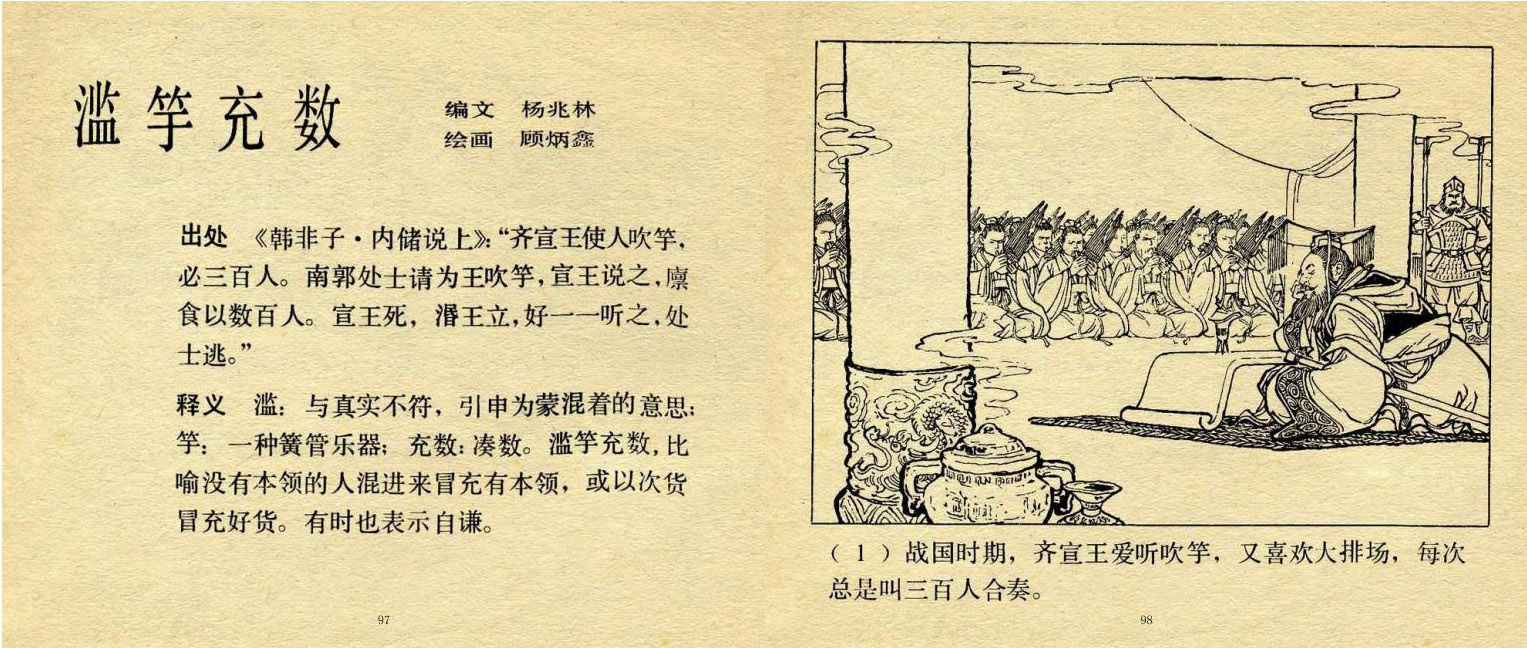 滥竽充数
编文 杨兆林
绘画 顾炳鑫
出处 《韩非子·内储说上》：“齐宣王使人吹竽，
必三百人。南郭处士请为王吹竽，宣王说之，廪
食以数百人。宣王死，湣王立，好一一听之，处
士逃。”
释义 滥：与真实不符，引申为蒙混着的意思；
竽：一种簧管乐器；充数：凑数。滥竽充数，比
喻没有本领的人混进来冒充有本领，或以次货
冒充好货。有时也表示自谦。
97
（1）战国时期，齐宣王爱听吹竽，又喜欢大排场，每次
总是叫三百人合奏。
98